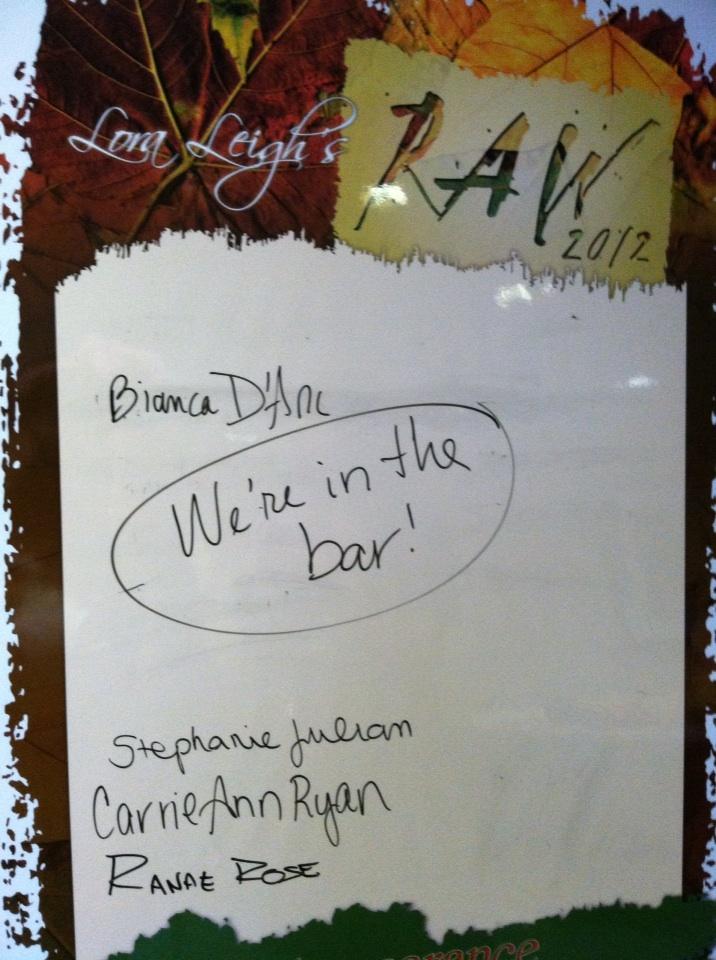 Lora Leigh's
RAW
2012
Bianca D'Arc
We're in the
bar!
Stephanie Julian
Carrie Ann Ryan
RANAE ROSE